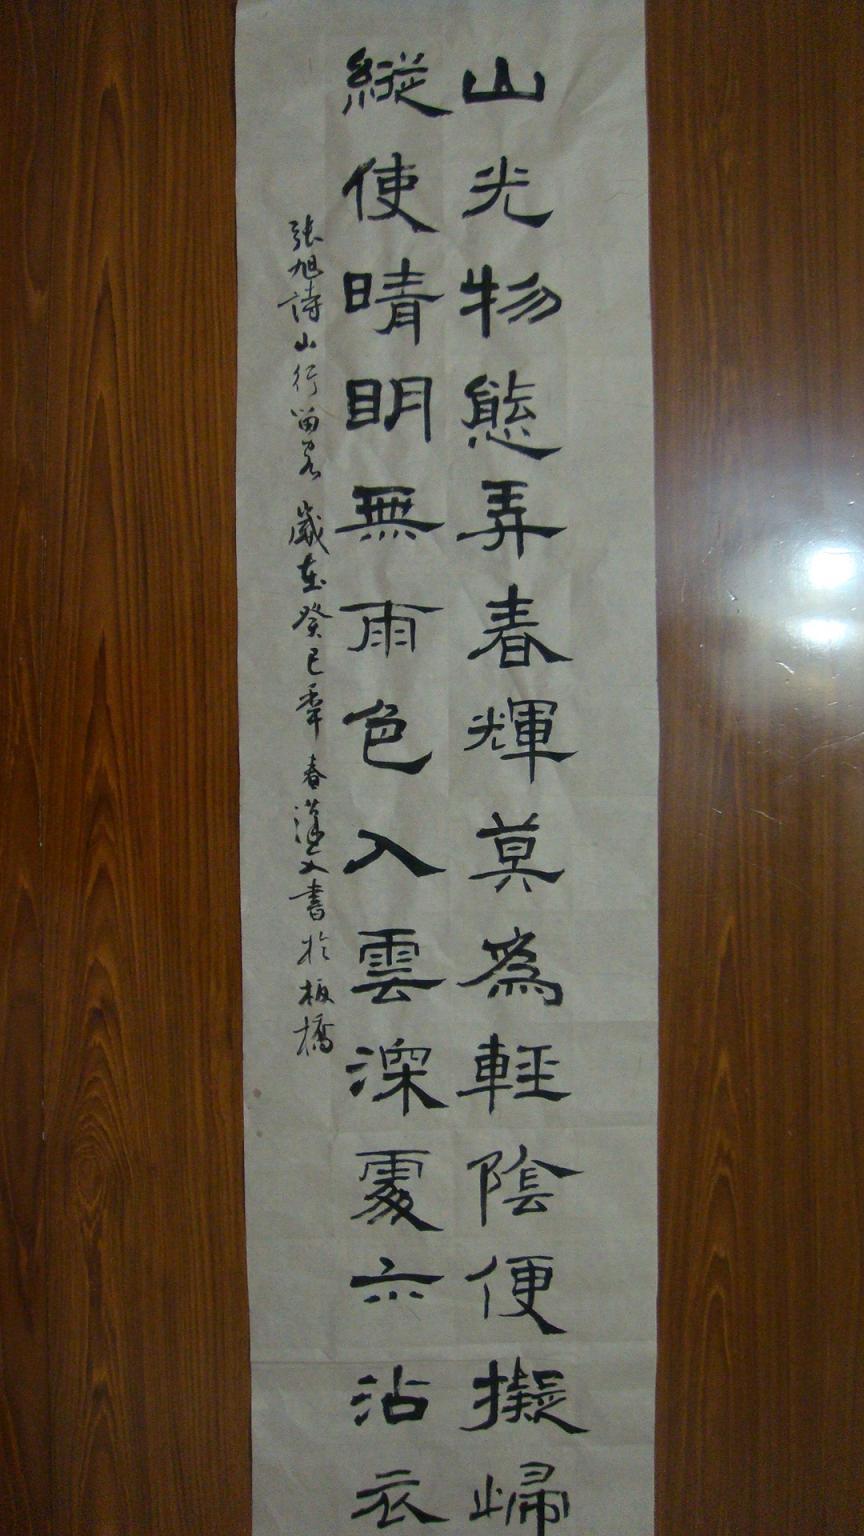 山光物態弄春輝莫爲輕陰便擬歸
縱使晴明無雨色入雲深處亦沾衣
張旭詩山行留客 歲在癸巳年 春漢文書於板橋